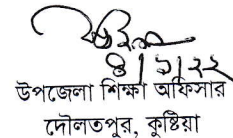 ৪।১।২২
উপজেলা শিক্ষা অফিসার
দৌলতপুর, কুষ্টিয়া